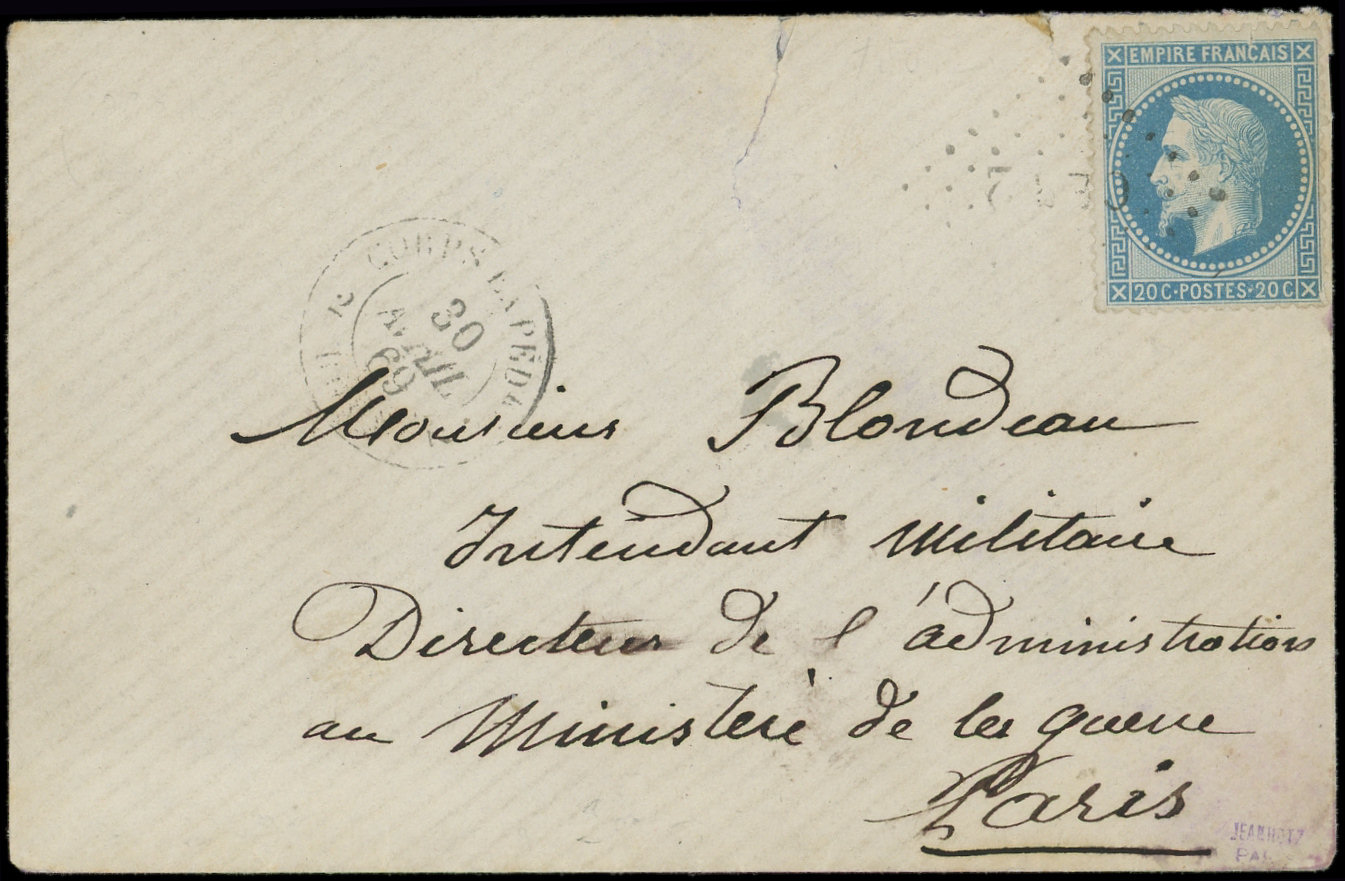 EMPIRE FRANÇAIS
20 C · POSTES · 20 C
CORPS EXPÉD
30
AVRIL
69
Monsieur Blondeau
Intendant Militaire
Directeur de l'administration
au Ministère de la guerre
Paris